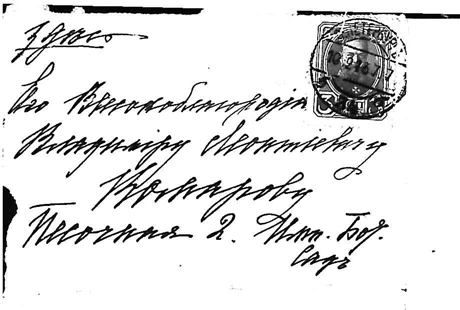 Здѣсь
Его Высокоблагородію
Владиміру Леонтіевичу
Комарову
Песочная 2. Имп. Бот.
Садъ